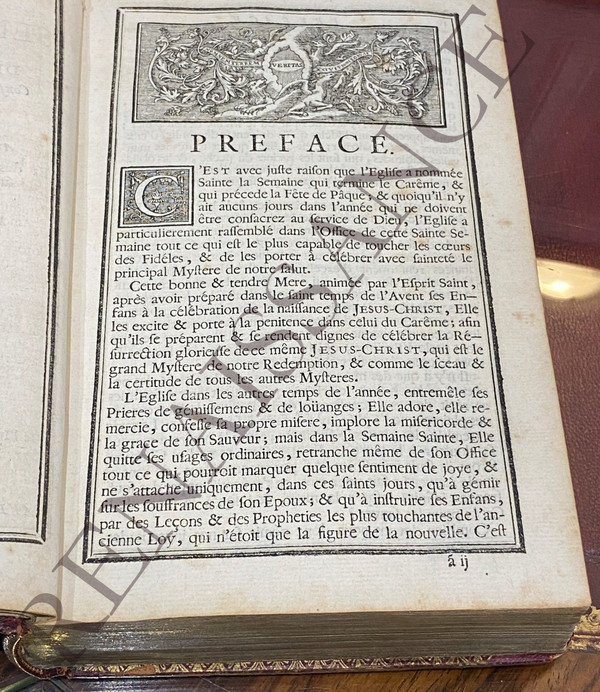 VERITAS
PREFACE.
C'EST avec juſte raiſon que l'Egliſe a nommée
Sainte la Semaine qui termine le Carême, &
qui précede la Fête de Pâque, & quoiqu'il n'y
ait aucuns jours dans l'année qui ne doivent
être conſacrez au ſervice de Dieu, l'Egliſe a
particulierement raſſemblé dans l'Office de cette Sainte Se-
maine tout ce qui eſt le plus capable de toucher les cœurs
des Fidéles, & de les porter à célébrer avec ſainteté le
principal Myſtere de notre ſalut.
Cette bonne & tendre Mere, animée par l'Eſprit Saint,
après avoir préparé dans le ſaint temps de l'Avent ſes En-
fans à la célébration de la naiſſance de JESUS-CHRIST, Elle
les excite & porte à la penitence dans celui du Carême; afin
qu'ils ſe préparent & ſe rendent dignes de célébrer la Ré-
ſurrection glorieuſe de ce même JESUS-CHRIST, qui eſt le
grand Myſtere de notre Redemption, & comme le ſceau &
la certitude de tous les autres Myſteres.
L'Egliſe dans les autres temps de l'année, entremêle ſes
Prieres de gémiſſemens & de loüanges; Elle adore, elle re-
mercie, confeſſe ſa propre miſere, implore la miſericorde &
la grace de ſon Sauveur; mais dans la Semaine Sainte, Elle
quitte ſes uſages ordinaires, retranche même de ſon Office
tout ce qui pourroit marquer quelque ſentiment de joye, &
ne s'attache uniquement, dans ces ſaints jours, qu'à gémir
ſur les ſouffrances de ſon Epoux; & qu'à inſtruire ſes Enfans,
par des Leçons & des Propheties les plus touchantes de l'an-
cienne Loy, qui n'étoit que la figure de la nouvelle. C'eſt
ã ij
RENAISSANCE